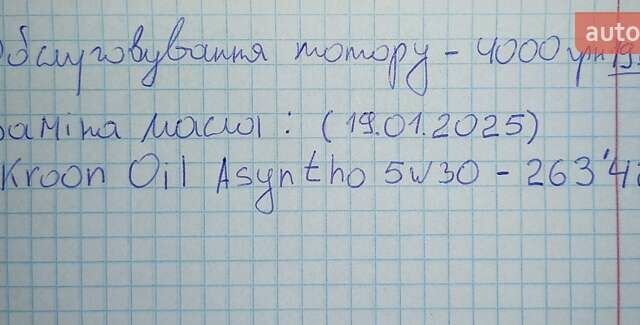 auto
обслуговування мотору - 4000 грн 19.
заміна масла: (19.01.2025)
Kroon Oil Asyntho 5w30 - 263'4